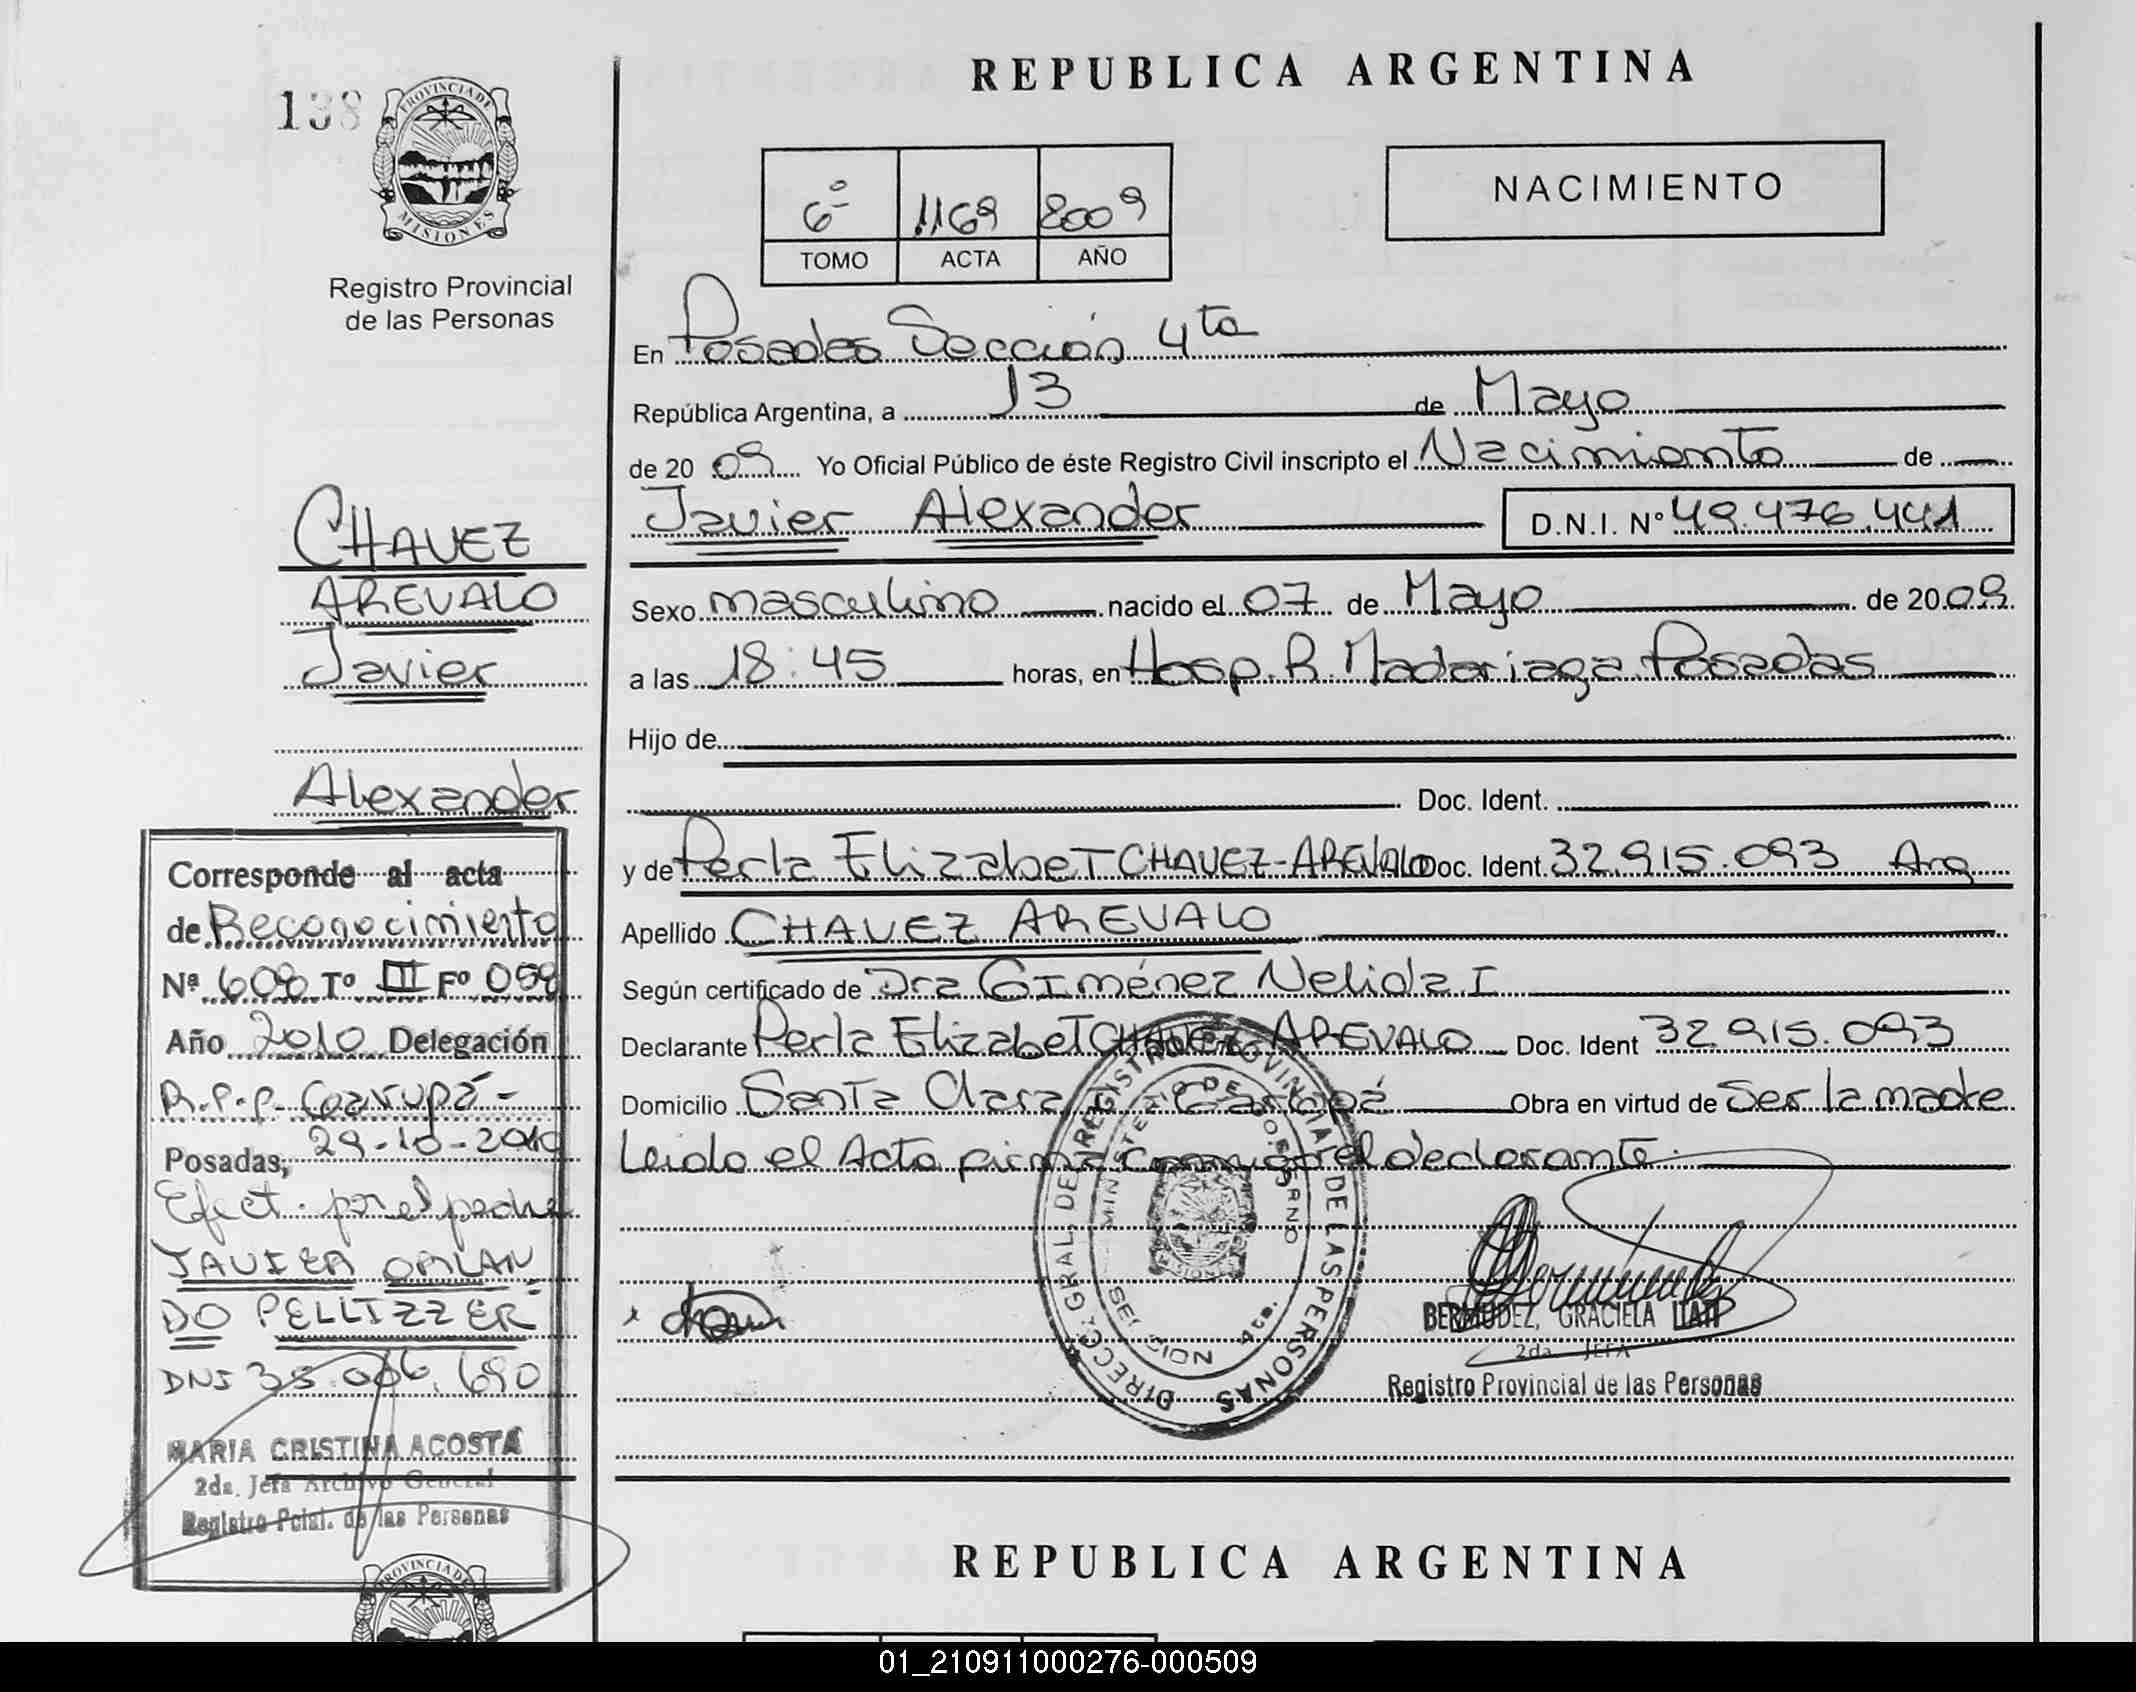 REPUBLICA ARGENTINA
138
PROVINCIA DE
MISIONES
Registro Provincial
de las Personas
6º 1169 2009
TOMO ACTA AÑO
NACIMIENTO
En Posadas Sección 4ta
República Argentina, a 13 de Mayo
de 20 09 Yo Oficial Público de éste Registro Civil inscripto el Nacimiento de
Javier Alexander D.N.I. Nº 49.476.441
Sexo masculino nacido el 07 de Mayo de 20 09
a las 18:45 horas, en Hosp. R. Madariaga Posadas
Hijo de
Doc. Ident.
y de Perla Elizabet CHAVEZ-AREVALO Doc. Ident. 32.915.093 Arg
Apellido CHAVEZ AREVALO
Según certificado de Dra Giménez Nelida I
Declarante Perla Elizabet CHAVEZ AREVALO Doc. Ident 32.915.093
Domicilio Santa Clara Garupá Obra en virtud de Ser la madre
Leido el Acta firma conmigo el declarante.
DIRECC. GRAL. DE REGISTRO PROVINCIAL DE LAS PERSONAS
MINISTERIO DE GOBIERNO
SECCION 4ta.
BERMUDEZ, GRACIELA ITATI
2da. JEFA
Registro Provincial de las Personas
CHAVEZ
AREVALO
Javier
Alexander
Corresponde al acta
de Reconocimiento
Nª 608 Tº III Fº 059
Año 2010 Delegación
R.P.P. Garupá-
Posadas, 29-10-2010
Efect. por el padre
JAVIER ORLAN-
DO PELLIZZER
DNI 35.006.690
MARIA CRISTINA ACOSTA
2da. Jefa Archivo General
Registro Pcial. de las Personas
PROVINCIA DE
REPUBLICA ARGENTINA
01_210911000276-000509